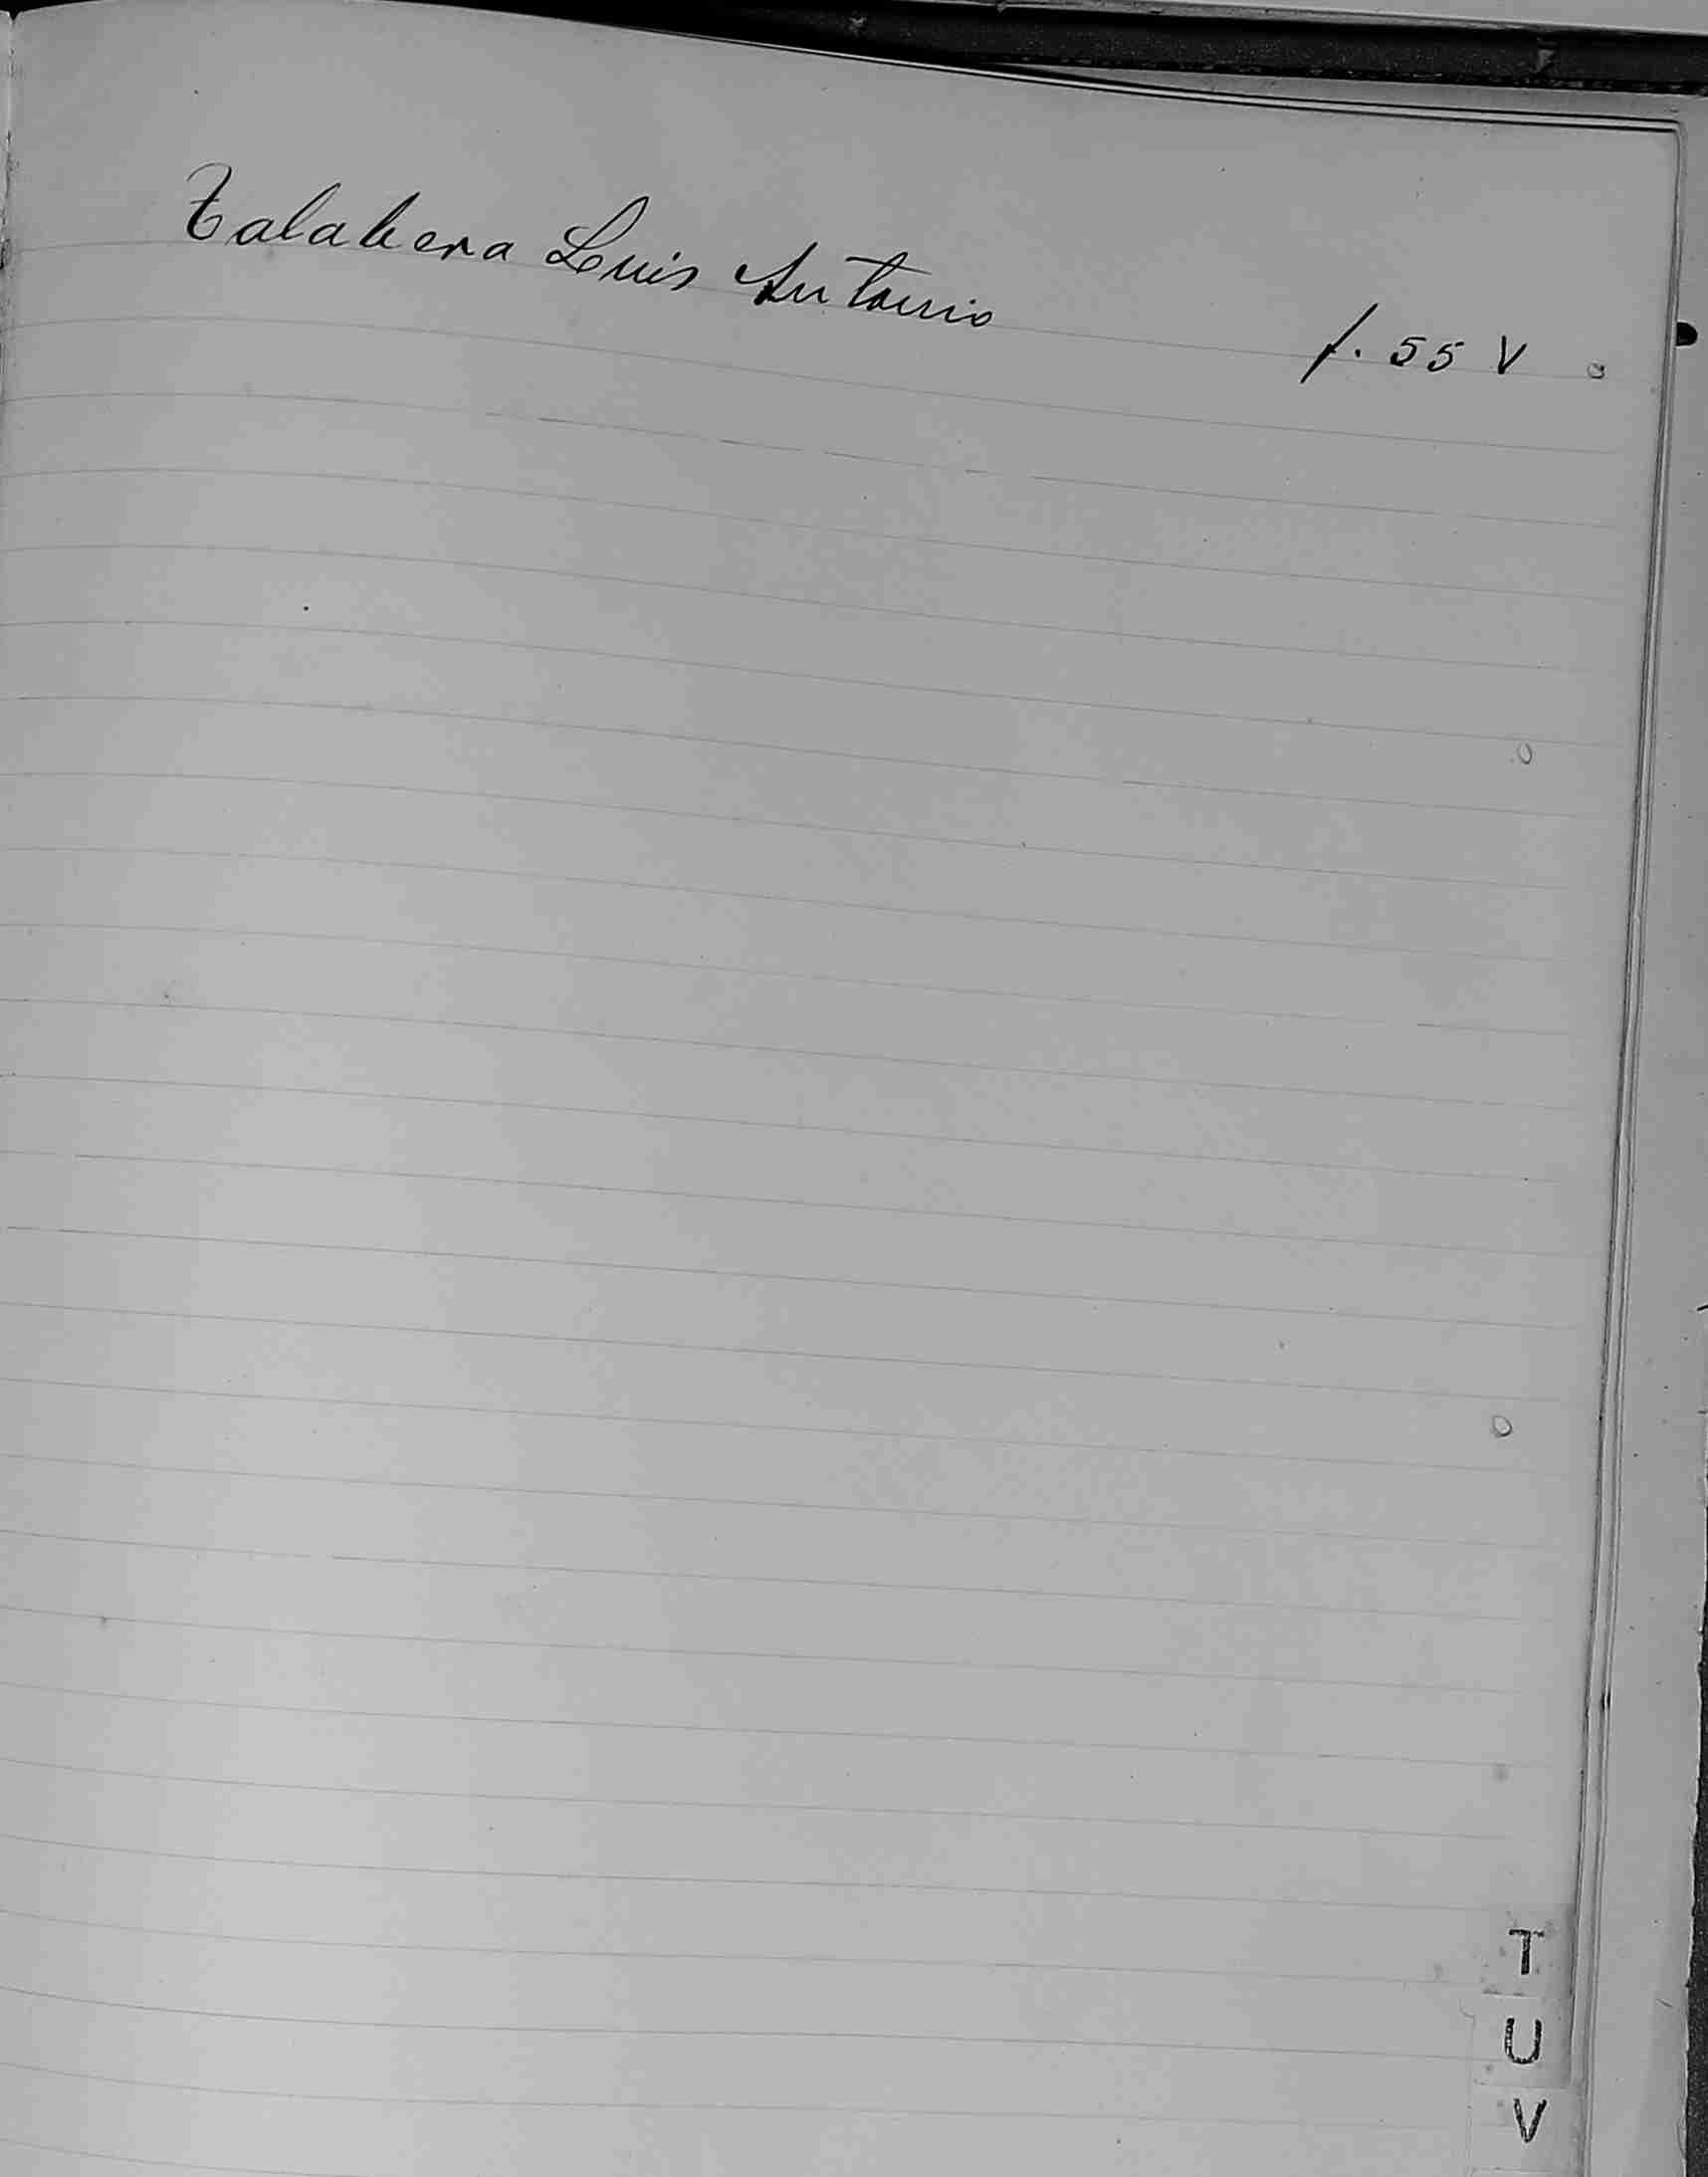 Talabera Luis Antonio f. 55 V
T
U
V